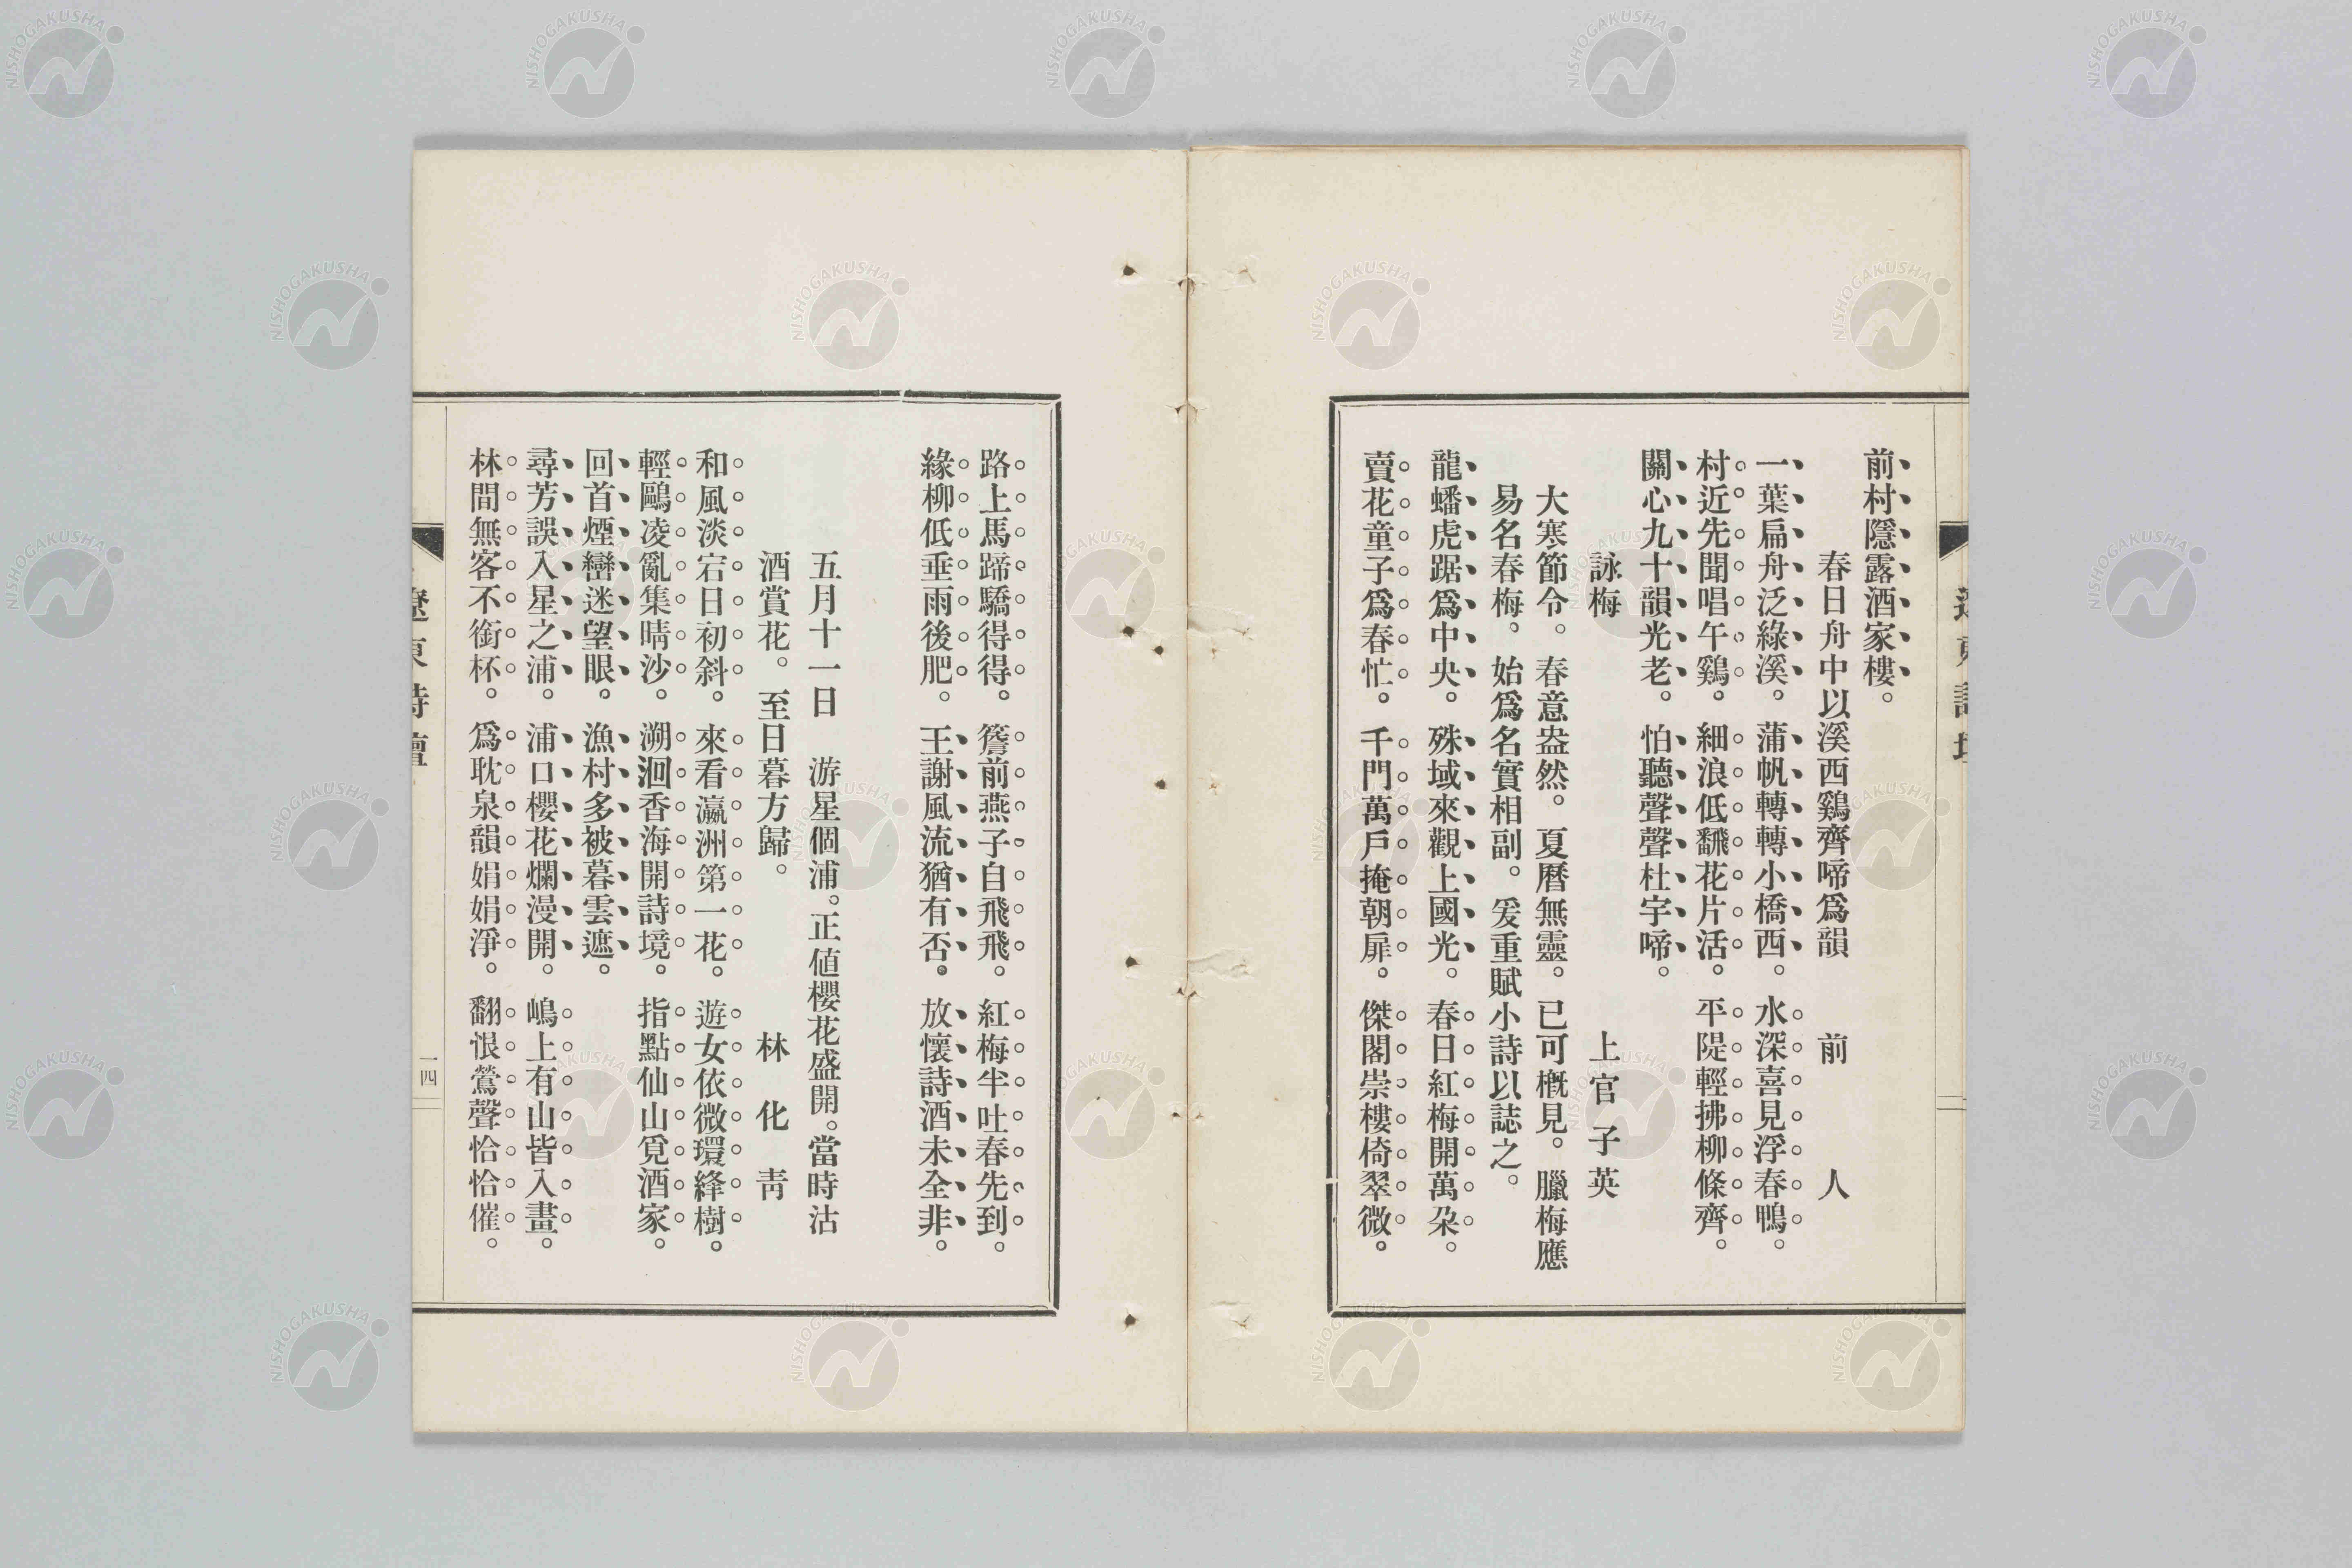 前村隱露酒家樓。
春日舟中以溪西鷄齊啼爲韻　前人
一葉扁舟泛綠溪。蒲帆轉轉小橋西。水深喜見浮春鴨。
村近先聞唱午鷄。細浪低飜花片活。平隄輕拂柳條齊。
關心九十韻光老。怕聽聲聲杜宇啼。
詠梅　上官子英
大寒節令。春意盎然。夏曆無靈。已可槪見。臘梅應
易名春梅。始爲名實相副。爰重賦小詩以誌之。
龍蟠虎踞爲中央。殊域來觀上國光。春日紅梅開萬朶。
賣花童子爲春忙。千門萬戶掩朝扉。傑閣崇樓倚翠微。
路上馬蹄驕得得。簷前燕子自飛飛。紅梅半吐春先到。
緣柳低垂雨後肥。王謝風流猶有否。放懷詩酒未全非。
五月十一日　游星個浦。正値櫻花盛開。當時沽
酒賞花。至日暮方歸。　林化靑
和風淡宕日初斜。來看瀛洲第一花。遊女依微環絳樹。
輕鷗凌亂集晴沙。溯洄香海開詩境。指點仙山覓酒家。
回首煙巒迷望眼。漁村多被暮雲遮。
尋芳誤入星之浦。浦口櫻花爛漫開。嶋上有山皆入畫。
林間無客不銜杯。爲耽泉韻娟娟淨。翻恨鶯聲恰恰催。
遼東詩壇
一四
NISHOGAKUSHA